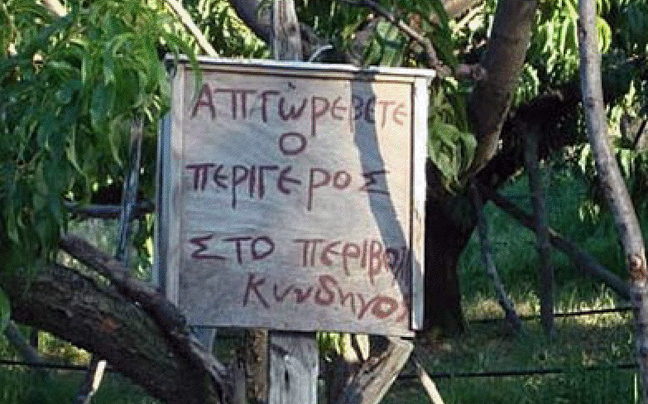 ΑΠΓὼΡΕΒΕΤΕ
Ο
ΠΕΡΙΓΕΡΟΣ
ΣΤΟ ΠΕΡΙΒΟΛ
Κυνδηγοι